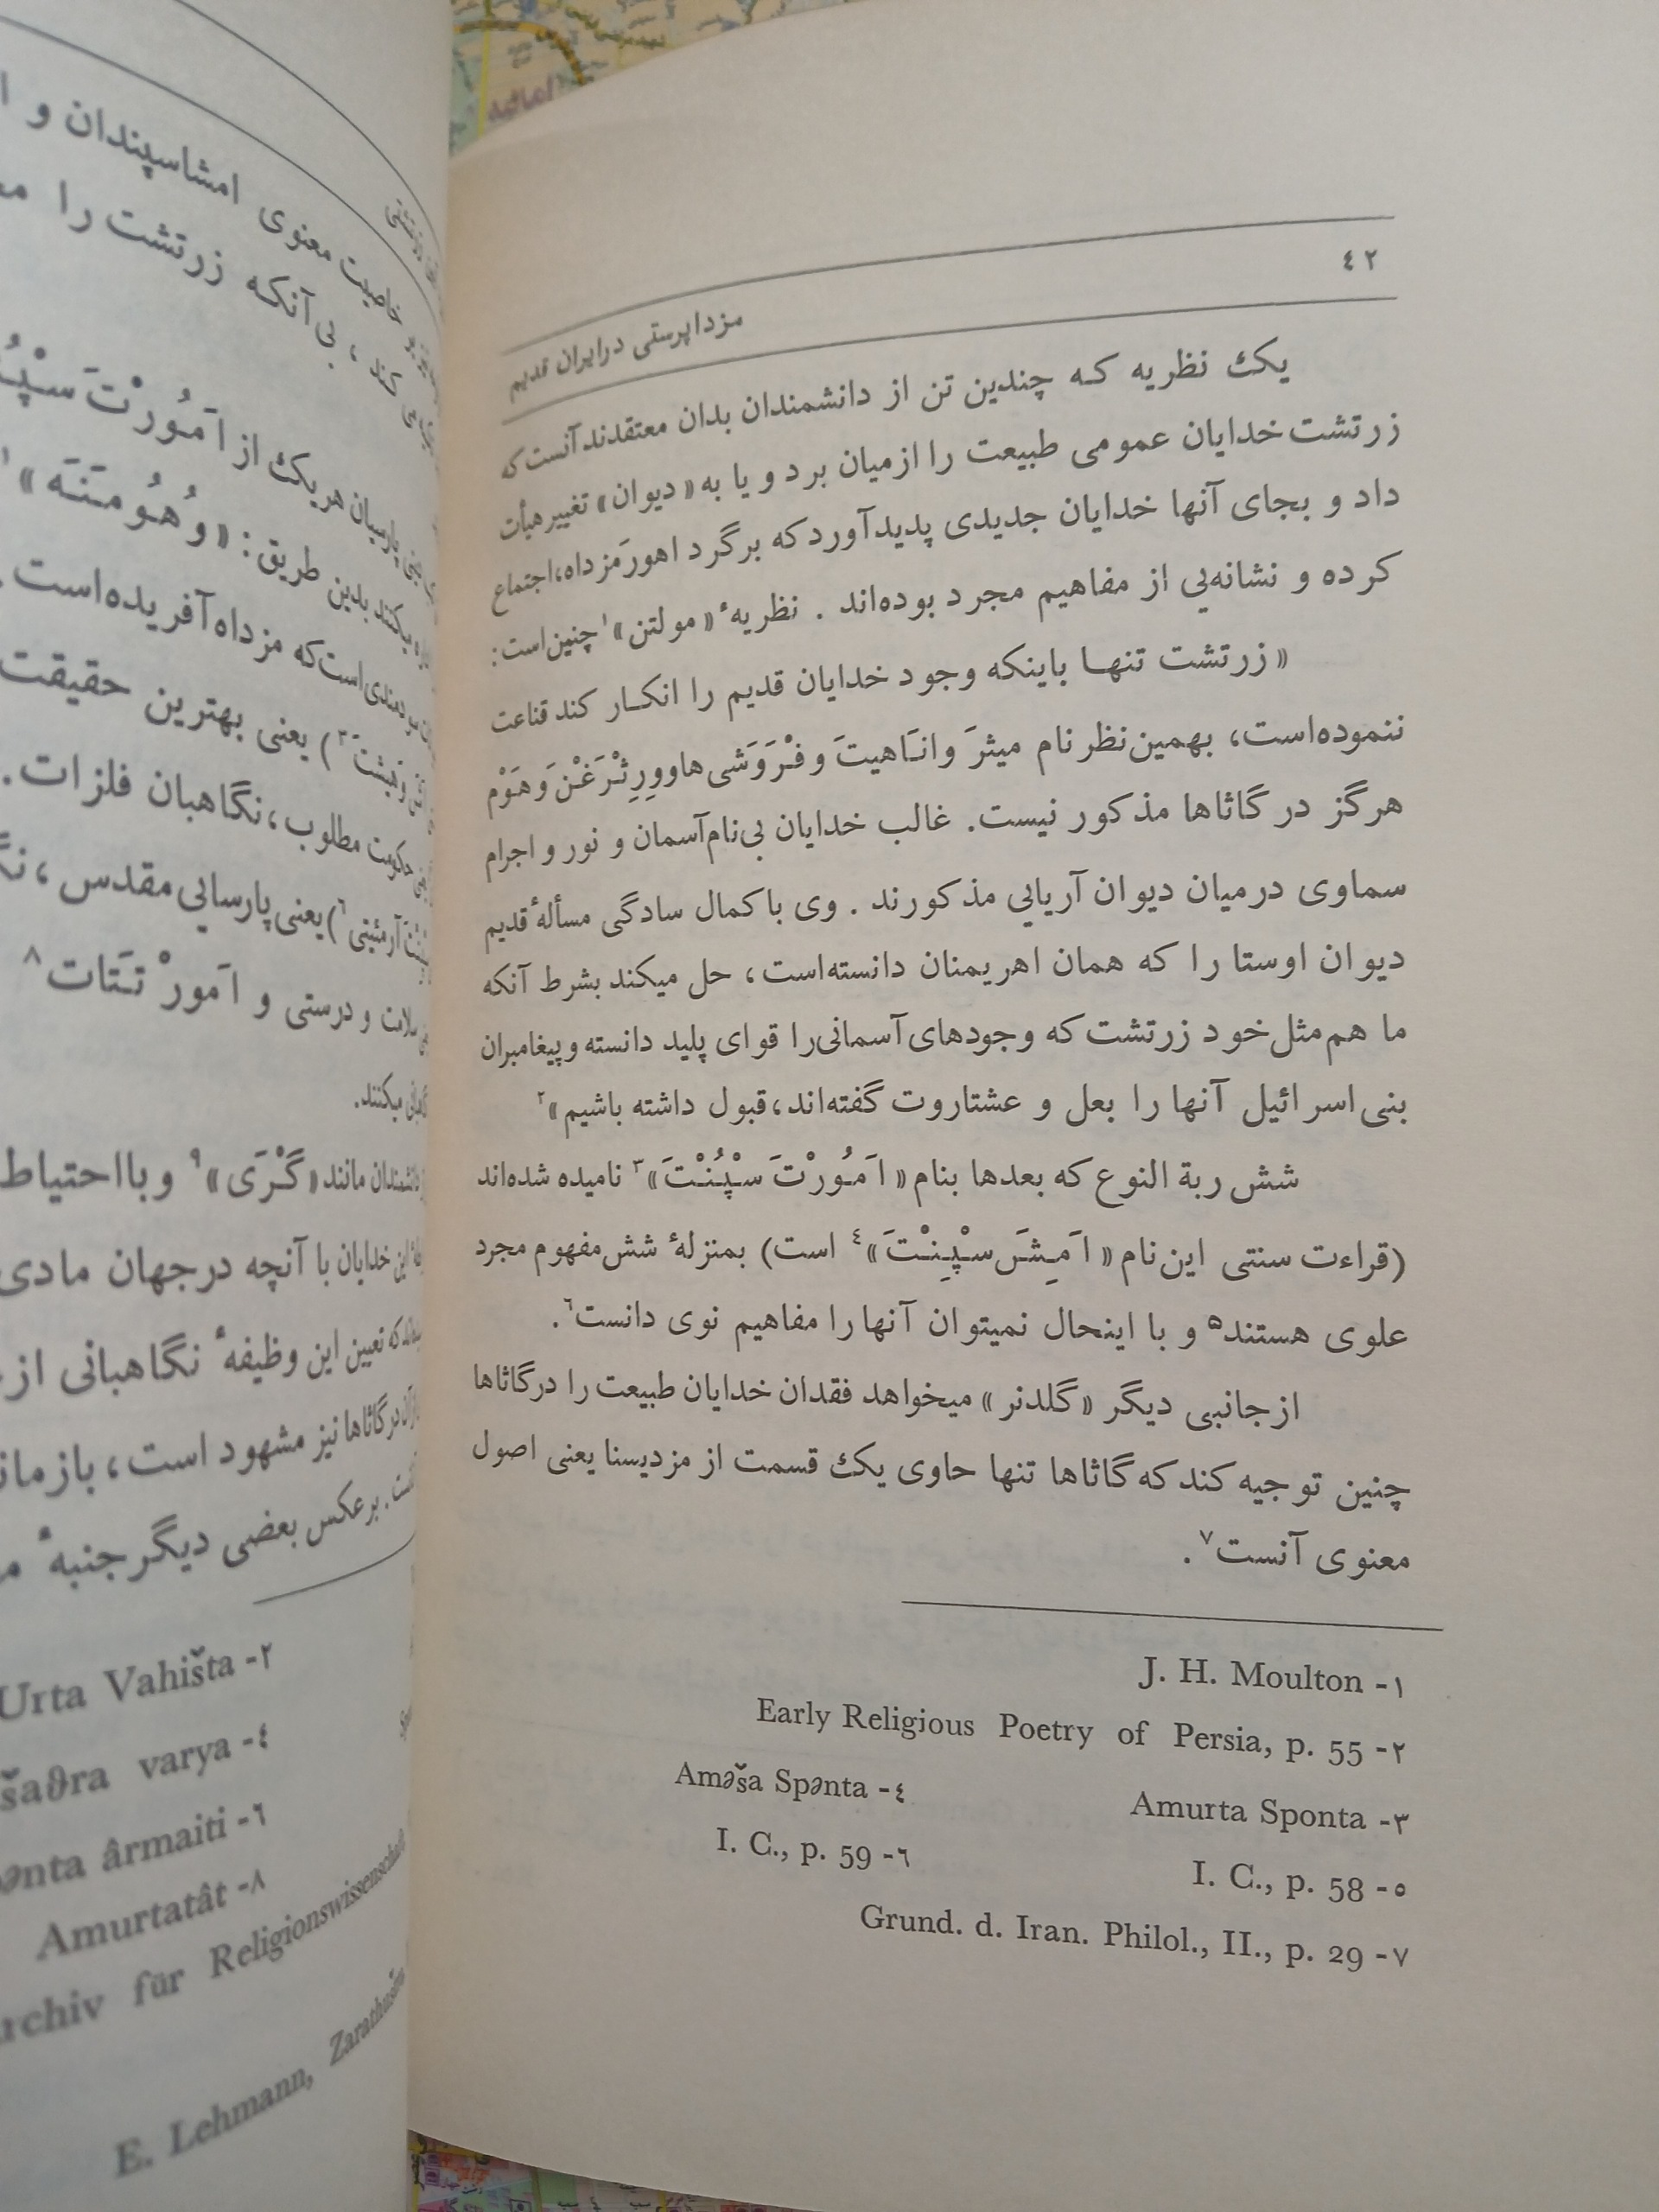 ٤٢
مزداپرستی درایران قدیم
یک نظریه که چندین تن از دانشمندان بدان معتقدند آنست که
زرتشت خدایان عمومی طبیعت را ازمیان برد و یا به «دیوان» تغییر هیأت
داد و بجای آنها خدایان جدیدی پدید آورد که برگرد اهورَمزداه، اجتماع
کرده و نشانه‌یی از مفاهیم مجرد بوده‌اند . نظریهٔ «مولتن»۱ چنین است:
« زرتشت تنها باینکه وجود خدایان قدیم را انکار کند قناعت
ننموده‌است، بهمین نظر نام میثرَ واناَهیتَ و فْرَوَشی‌ها وورِثْرَغْنَ وهَوْم
هرگز در گاثاها مذکور نیست. غالب خدایان بی‌نام آسمان و نور و اجرام
سماوی درمیان دیوان آریایی مذکورند . وی با کمال سادگی مسألهٔ قدیم
دیوان اوستا را که همان اهریمنان دانسته‌است، حل میکند بشرط آنکه
ما هم مثل خود زرتشت که وجودهای آسمانی‌را قوای پلید دانسته وپیغامبران
بنی‌اسرائیل آنها را بعل و عشتاروت گفته‌اند، قبول داشته باشیم»۲
شش ربة النوع که بعدها بنام «اَمُورْتَ سْپُنْتَ»۳ نامیده شده‌اند
(قراءت سنتی این نام «اَمِشَ سْپِنْتَ»٤ است) بمنزلهٔ شش مفهوم مجرد
علوی هستند٥ و با اینحال نمیتوان آنها را مفاهیم نوی دانست٦.
ازجانبی دیگر «گلدنر» میخواهد فقدان خدایان طبیعت را درگاثاها
چنین توجیه کند که گاثاها تنها حاوی یک قسمت از مزدیسنا یعنی اصول
معنوی آنست۷ .
۱- J. H. Moulton
۲- Early Religious Poetry of Persia, p. 55
۳- Amurta Sponta
٤- Aməša Spənta
٥- I. C., p. 58
٦- I. C., p. 59
۷- Grund. d. Iran. Philol., II., p. 29
خاصیت معنوی امشاسپندان و
کند ، بی آنکه زرتشت را
پارسیان هریک از اَمُورْتَ
بدین طریق: «وُهُومَنَه»۱
است که مزداه آفریده‌است.
۳) یعنی بهترین حقیقت
حکومت مطلوب، نگاهبان فلزات.
آرمئیتی٦) یعنی پارسایی مقدس ،
سلامت و درستی و اَمورْتَتات۸
میکنند.
دانشمندان مانند «گْرَی»۹ و بااحتیاط
این خدایان با آنچه درجهان مادی
که تعیین این وظیفهٔ نگاهبانی از
درگاثاها نیز مشهود است،
. برعکس بعضی دیگر جنبهٔ
۲- Urta Vahišta
٤- varya
٦- ârmaiti
۸- Amurtatât
für Religionswissenschaft
E. Lehmann,